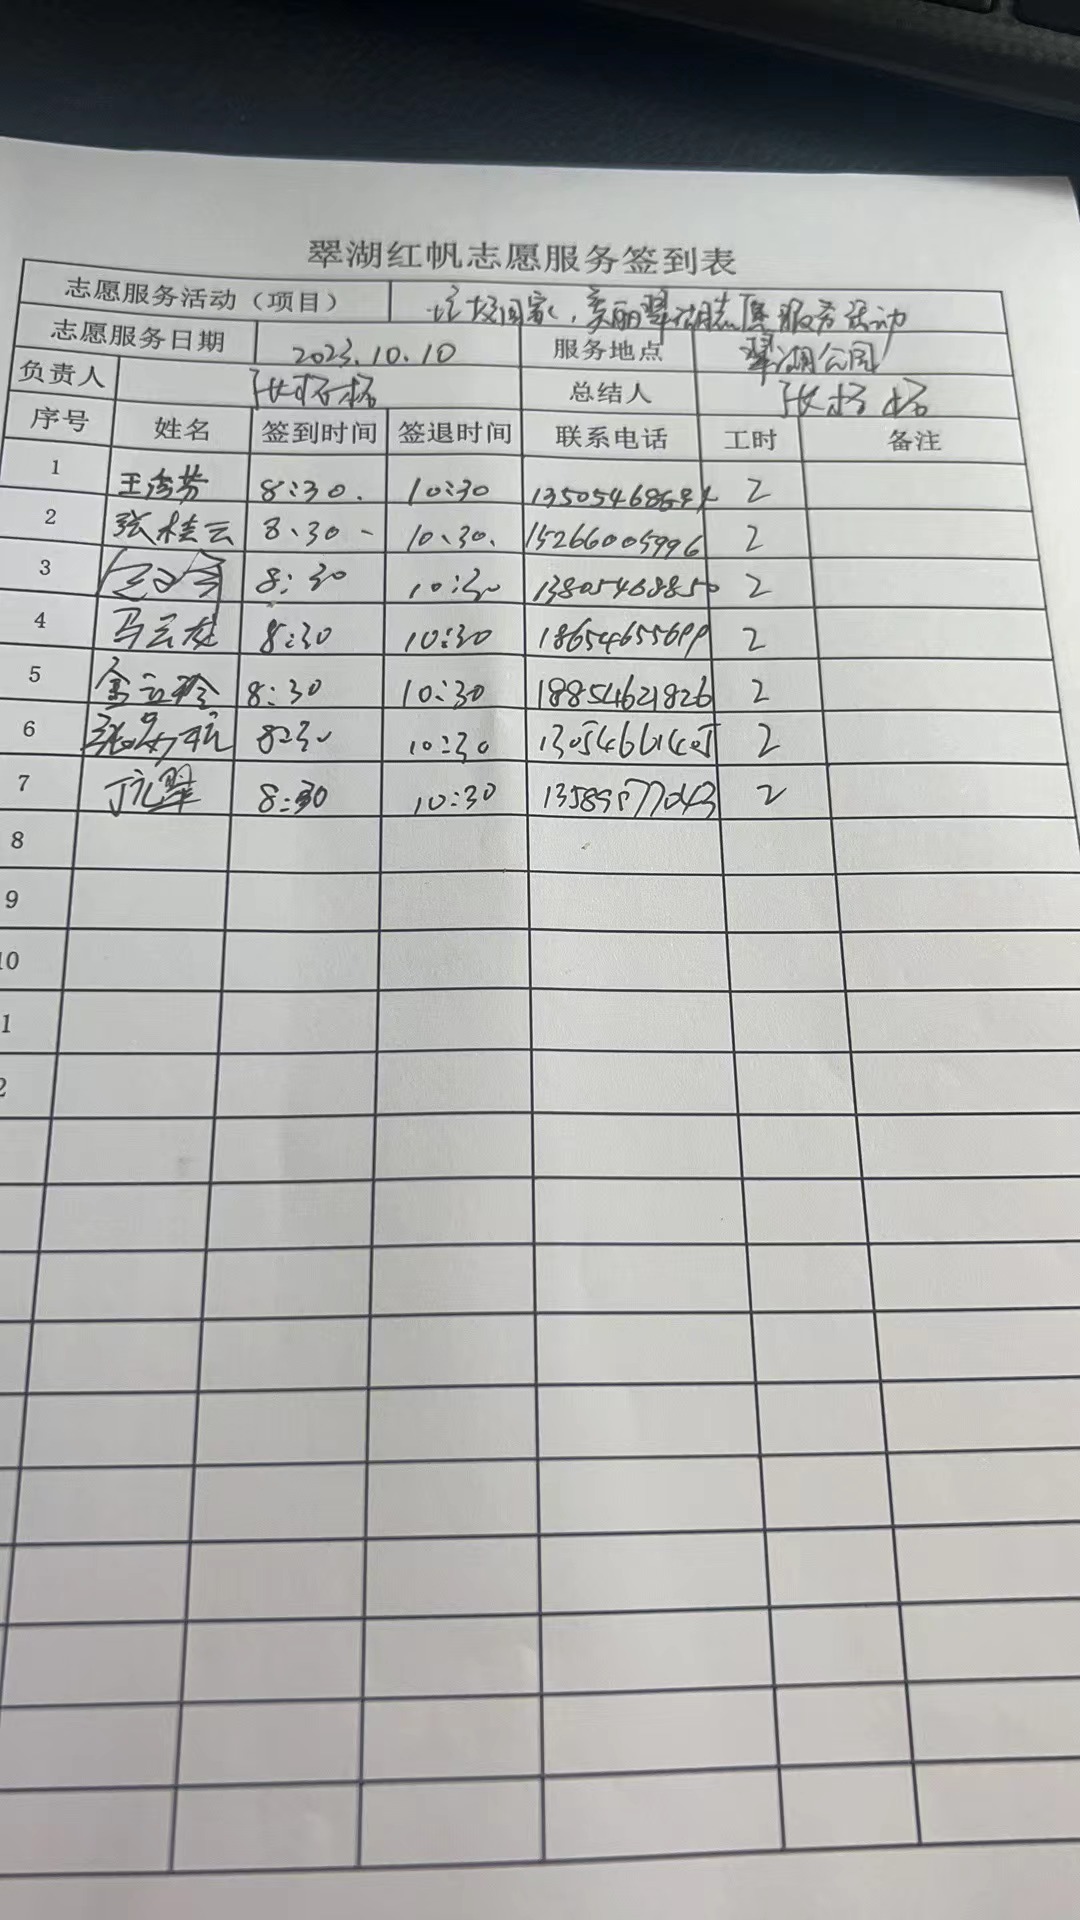 翠湖红帆志愿服务签到表
志愿服务活动（项目） 垃圾回家、美丽翠湖志愿服务活动
志愿服务日期 2023.10.10 服务地点 翠湖公园
负责人 张杨杨 总结人 张杨杨
序号 姓名 签到时间 签退时间 联系电话 工时 备注
1 王秀芳 8:30. 10:30 2
2 张桂云 8.30 - 10.30. 15266005996 2
3 8:30 10:30 13805468850 2
4 马云龙 8:30 10:30 18654655699 2
5 8:30 10:30 18854621826 2
6 8:30 10:30 13054661405 2
7 丁元翠 8:30 10:30 13589577043 2
8
9
10
1
2